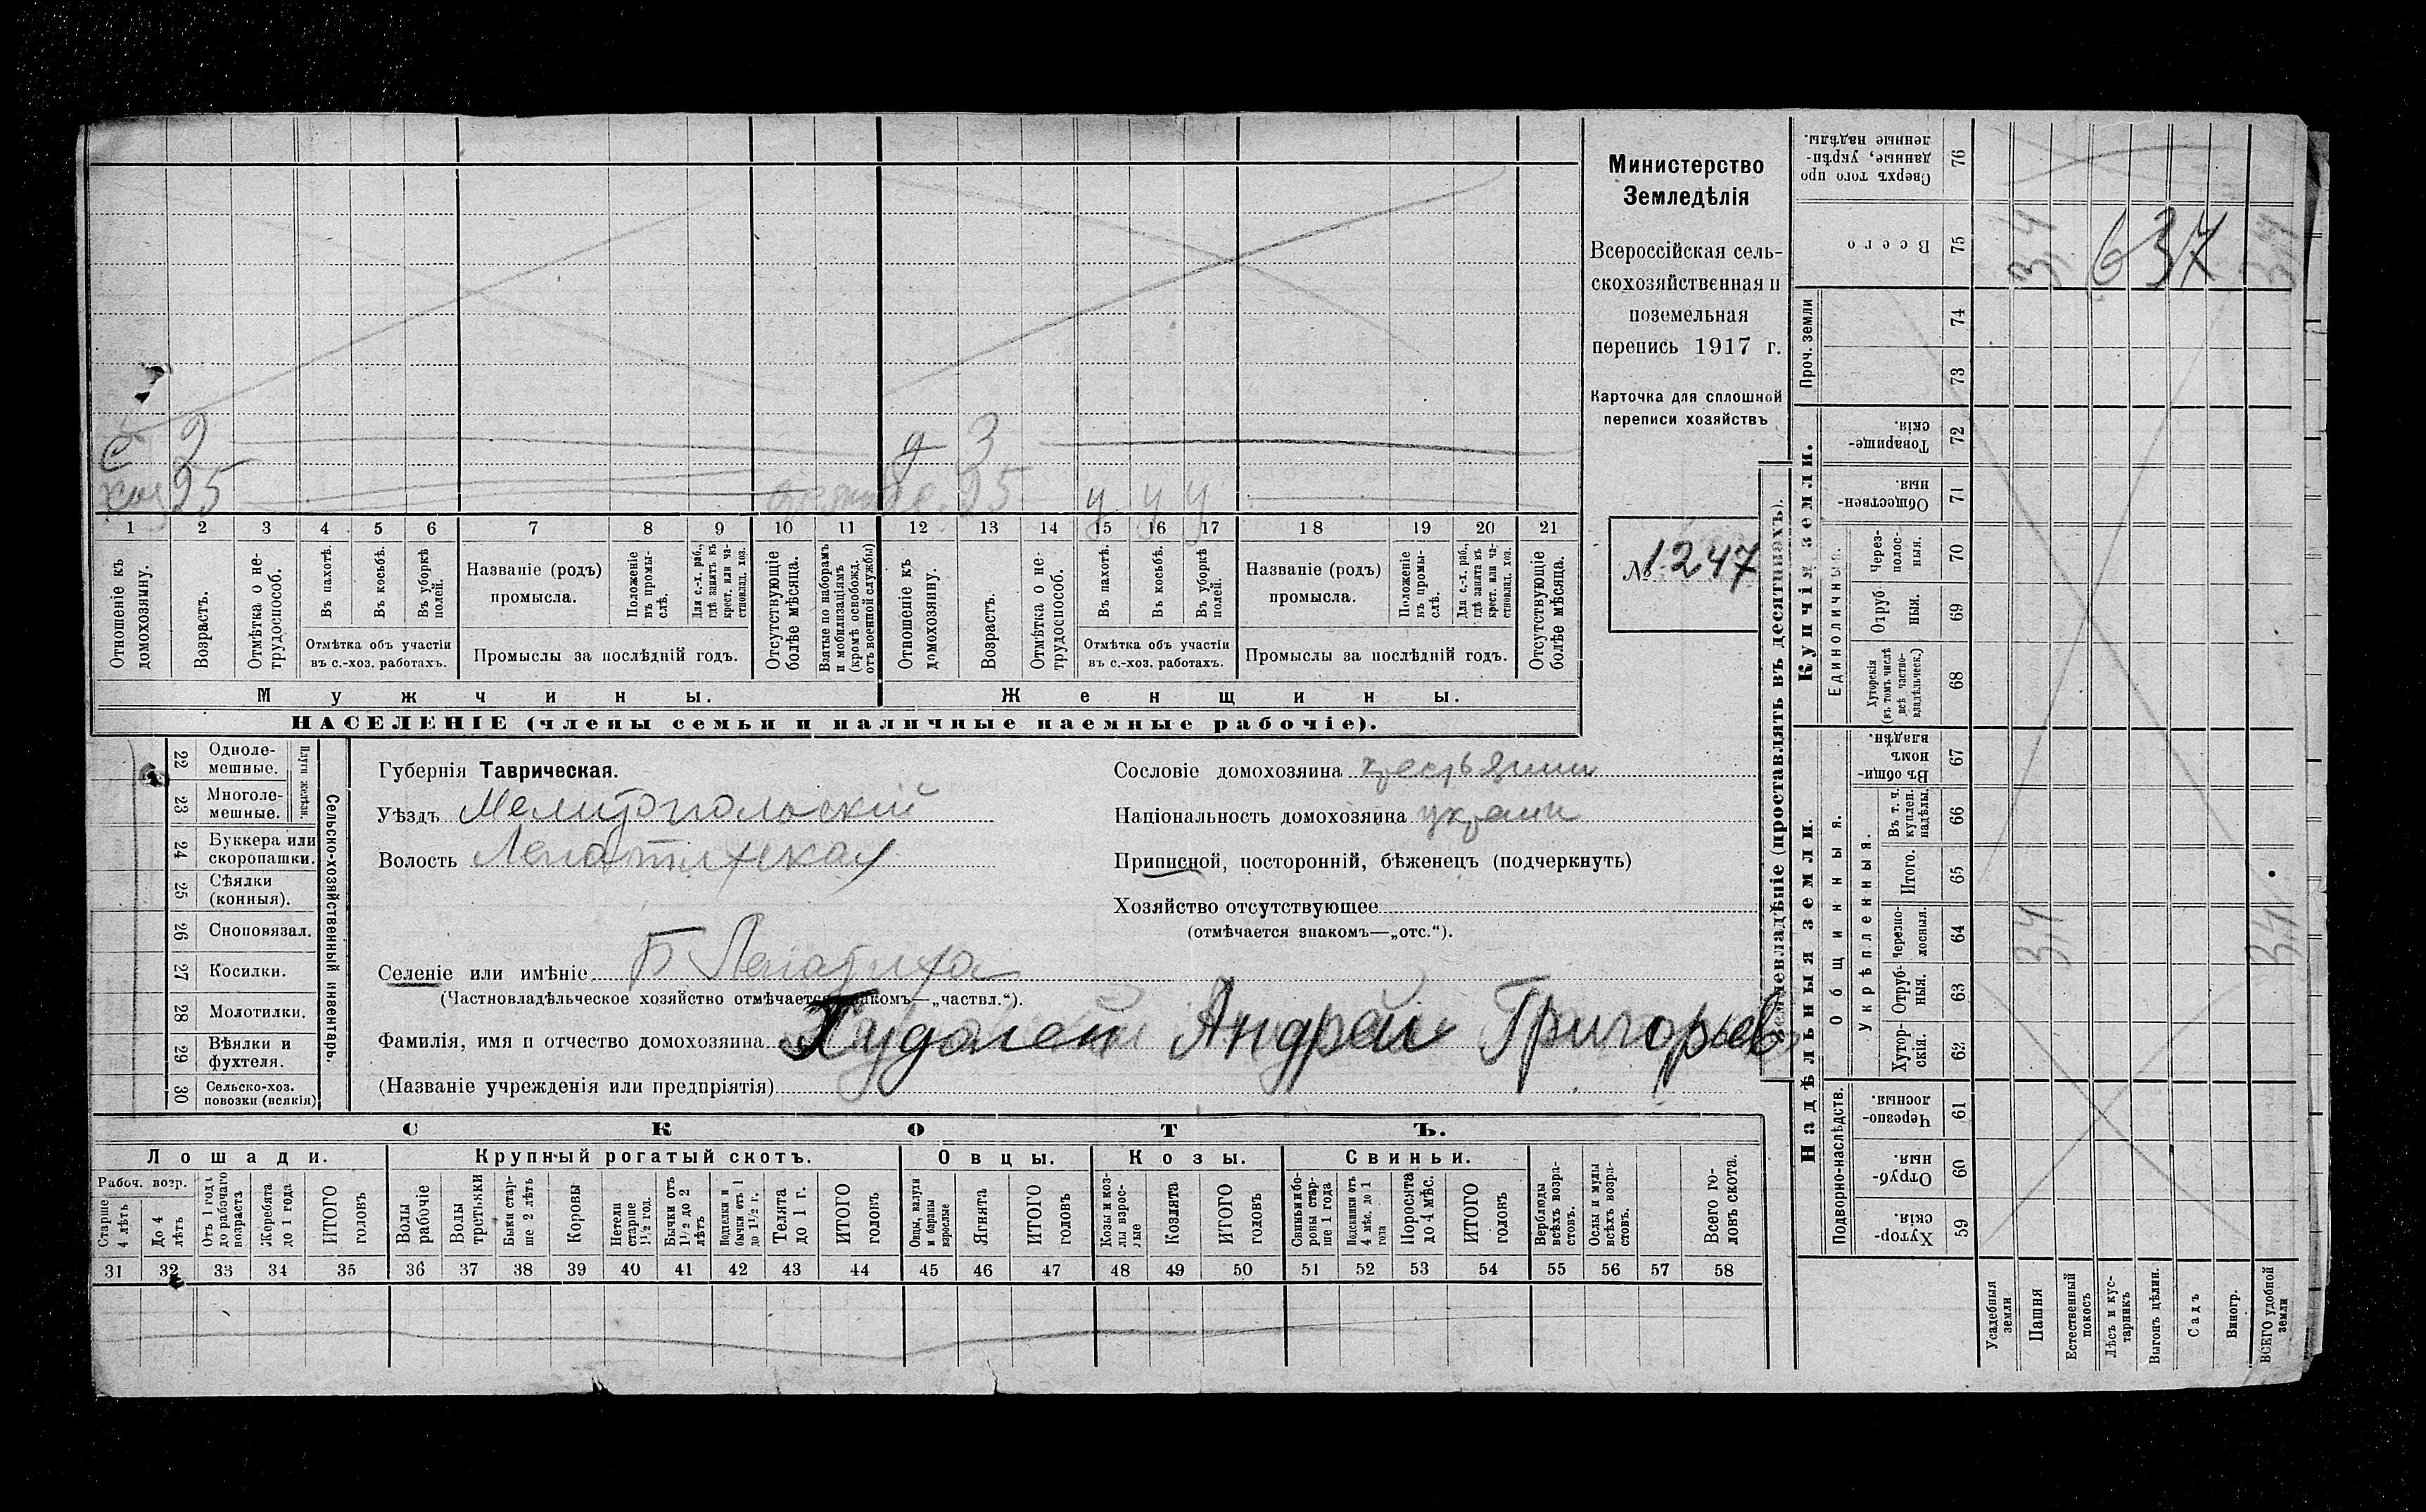 с 2 д 3
хоз 25 25 у у у
1 2 3 4 5 6 7 8 9 10 11 12 13 14 15 16 17 18 19 20 21
Отношеніе къ домохозяину.
Возрастъ.
Отмѣтка о не-трудоспособ.
Въ пахотѣ.
Въ косьбѣ.
Въ уборкѣ полей.
Отмѣтка объ участіи
въ с.-хоз. работахъ.
Названіе (родъ)
промысла.
Положеніе въ промы-слѣ.
Для с.-х. раб., гдѣ занятъ въ крест. или ча-стновлад. хоз.
Промыслы за послѣдній годъ.
Отсутствующіе болѣе мѣсяца.
Взятые по наборамъ и мобилизаціямъ (кромѣ освобожд. отъ военной службы)
Отношеніе къ домохозяину.
Возрастъ.
Отмѣтка о не-трудоспособ.
Въ пахотѣ.
Въ косьбѣ.
Въ уборкѣ полей.
Отмѣтка объ участіи
въ с.-хоз. работахъ.
Названіе (родъ)
промысла.
Положеніе въ промы-слѣ.
Для с.-х. раб., гдѣ занята въ крест. или ча-стновлад. хоз.
Промыслы за послѣдній годъ.
Отсутствующіе болѣе мѣсяца.
Мужчины. Женщины.
НАСЕЛЕНІЕ (члены семьи и наличные наемные рабочіе).
Министерство
Земледѣлія
Всероссійская сель-
скохозяйственная и
поземельная
перепись 1917 г.
Карточка для сплошной
переписи хозяйствъ
№ 1247
Сельско-хозяйственный инвентарь.
Плуги желѣзн.
22 Одноле-мешные.
23 Многоле-мешные.
24 Буккера или скоропашки.
25 Сѣялки (конныя).
26 Сноповязал.
27 Косилки.
28 Молотилки.
29 Вѣялки и фухтеля.
30 Сельско-хоз. повозки (всякія)
Губернія Таврическая.
Уѣздъ Мелитопольскій
Волость Лепатихская
Селеніе или имѣніе Б Лепатиха
(Частновладѣльческое хозяйство отмѣчается знакомъ—„частвл.“).
Фамилія, имя и отчество домохозяина Худолей Андрей Григорьев
(Названіе учрежденія или предпріятія)
Сословіе домохозяина крестьянин
Національность домохозяина украин
Приписной, посторонній, бѣженецъ (подчеркнуть)
Хозяйство отсутствующее
(отмѣчается знакомъ—„отс.“).
СКОТЪ.
Лошади. Крупный рогатый скотъ. Овцы. Козы. Свиньи.
Рабоч. возр.
Старше 4 лѣтъ
До 4 лѣтъ
Отъ 1 года до рабочаго возраста
Жеребята до 1 года
ИТОГО головъ
Волы рабочіе
Волы третьяки
Быки стар-ше 2 лѣтъ
Коровы
Нетели старше 1½ год.
Бычки отъ 1½ до 2 лѣтъ
Подтелки и бычки отъ 1 до 1½ г.
Телята до 1 г.
ИТОГО головъ
Овцы, валухи и бараны взрослые
Ягнята
ИТОГО головъ
Козы и коз-лы взрос-лые
Козлята
ИТОГО головъ
Свиньи и бо-ровы стар-ше 1 года
Подсвинки отъ 4 мѣс. до 1 года
Поросята до 4 мѣс.
ИТОГО головъ
Верблюды всѣхъ возра-стовъ.
Ослы и мулы всѣхъ возра-стовъ.
Всего го-ловъ скота.
31 32 33 34 35 36 37 38 39 40 41 42 43 44 45 46 47 48 49 50 51 52 53 54 55 56 57 58
Землевладѣніе (проставлять въ десятинахъ).
Надѣльныя земли.
Купчія земли.
Проч. земли
Подворно-наслѣдств.
Общинныя.
Укрѣпленныя.
Единоличныя.
Хутор-скія. 59
Отруб-ныя. 60
Черезпо-лосныя. 61
Хутор-скія. 62
Отруб-ныя. 63
Черезпо-лосныя. 64
Итого. 65
Въ т. ч. куплен. надѣлы. 66
Въ общи-номъ владѣн. 67
Хуторскія (въ томъ числѣ всѣ частно-владѣльческ.) 68
Отруб-ныя. 69
Через-полос-ныя. 70
Обществен-ныя. 71
Товарище-скія. 72
73
74
Всего 75
Сверхъ того про-данные, укрѣп-ленные надѣлы. 76
Усадебныя земли
Пашня 3,4 3,4
Естественный покосъ
Лѣсъ и кус-тарникъ
Выгонъ цѣлин.
Садъ
Виногр.
ВСЕГО удобной земли 3,4 3,4
637